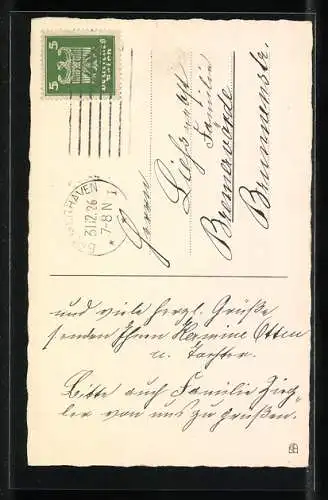 5 5
Deutsches Reich
HAVEN
31.12.26
7-8 N
Herrn
u.
Familie
Bremervörde
Brunnenstr.
und viele herzl. Grüße
senden Ihnen Hermine Otten
u. Tochter.
Bitte auch Familie Zieg-
ler von uns zu grüßen.